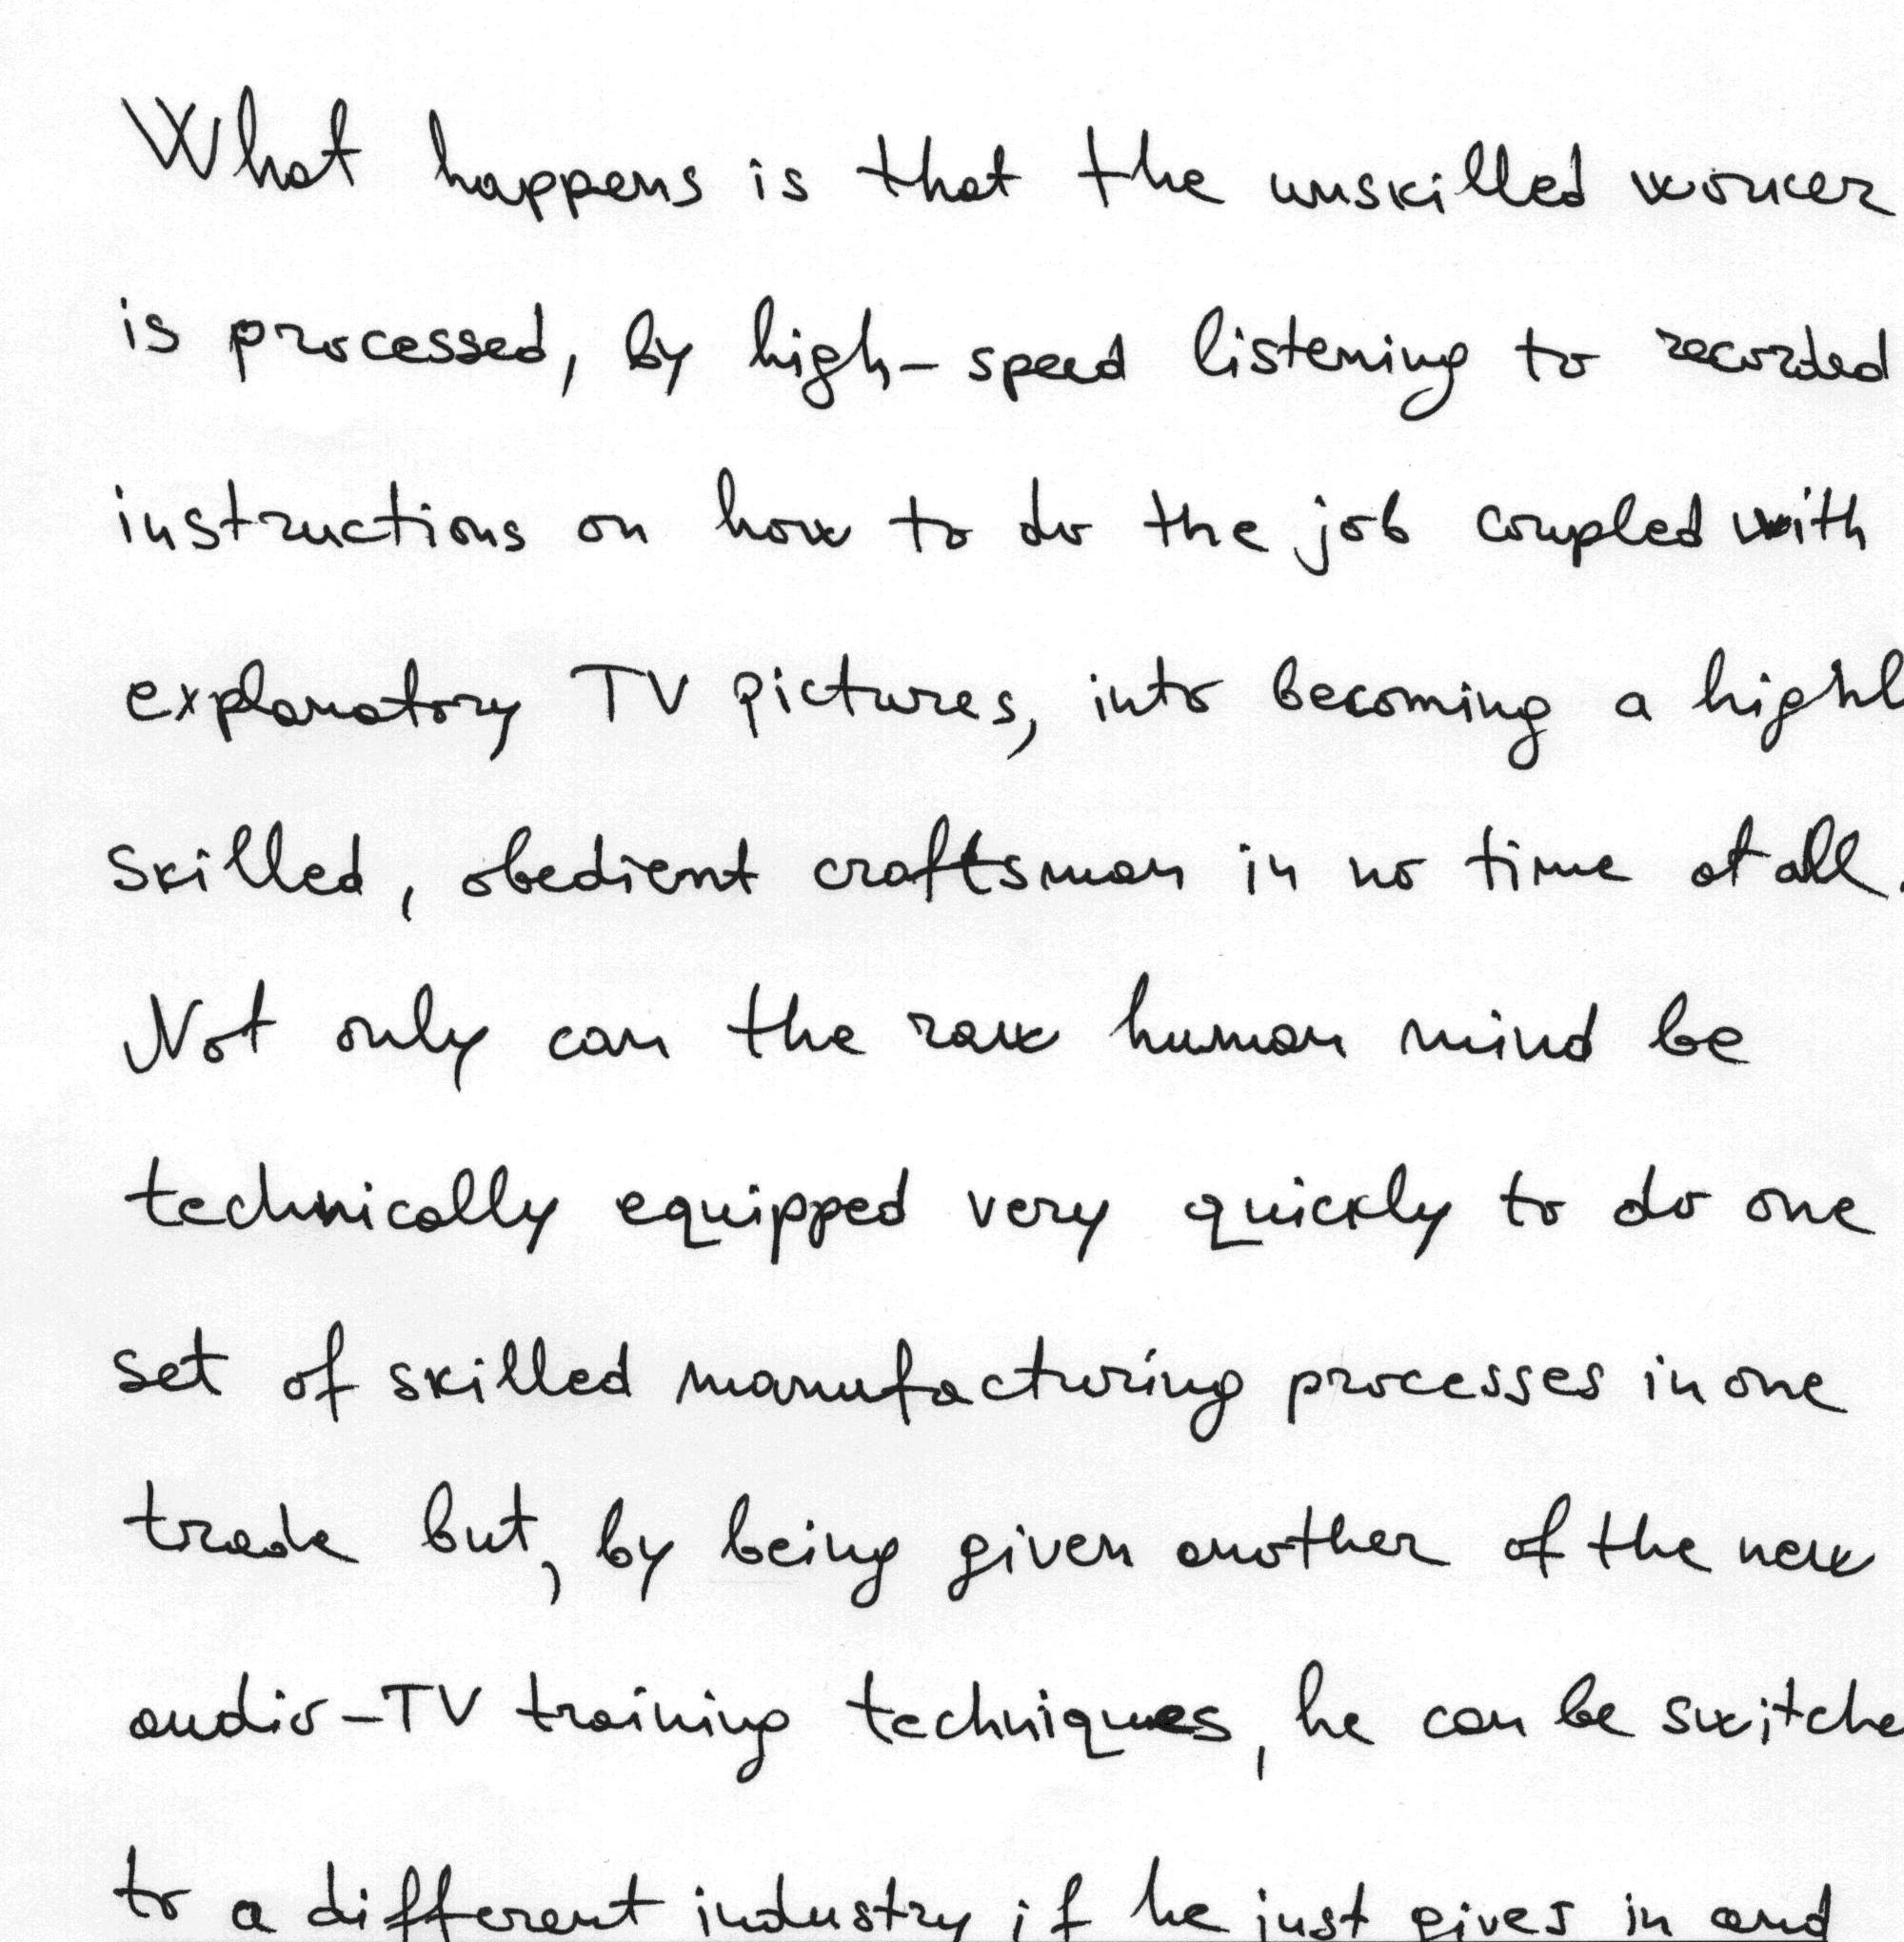 What happens is that the unskilled worker
is processed, by high-speed listening to recorded
instructions on how to do the job coupled with
explanatory TV pictures, into becoming a highl
skilled, obedient craftsman in no time at all.
Not only can the raw human mind be
technically equipped very quickly to do one
set of skilled manufacturing processes in one
trade but, by being given another of the new
audio-TV training techniques, he can be switche
to a different industry if he just gives in and